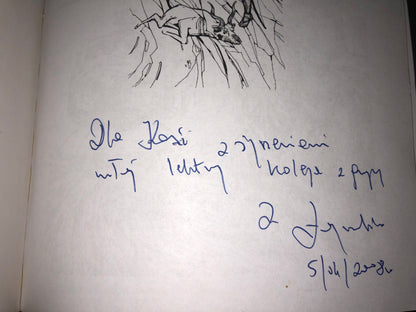 Dla Kasi z życzeniami
miłej lektury kolega z grupy
5/04/2008